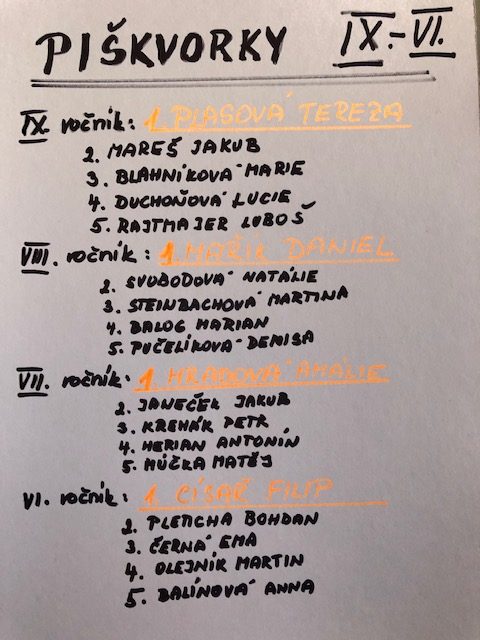 PIŠKVORKY IX.-VI.
IX. ročník: 1. PLASOVÁ TEREZA
2. MAREŠ JAKUB
3. BLAHNÍKOVÁ MARIE
4. DUCHOŇOVÁ LUCIE
5. RAJTMAJER LUBOŠ
VIII. ročník: 1. MAŘÍK DANIEL
2. SVOBODOVÁ NATÁLIE
3. STEINBACHOVÁ MARTINA
4. BALOG MARIAN
5. PUČELÍKOVÁ DENISA
VII. ročník: 1. HRADENÁ AMÁLIE
2. JANEČEK JAKUB
3. KREHÁK PETR
4. HERIAN ANTONÍN
5. MÚČKA MATĚJ
VI. ročník: 1. CÍSAŘ FILIP
2. PLENCHA BOHDAN
3. ČERNÁ EMA
4. OLEJNÍK MARTIN
5. BALÍNOVÁ ANNA